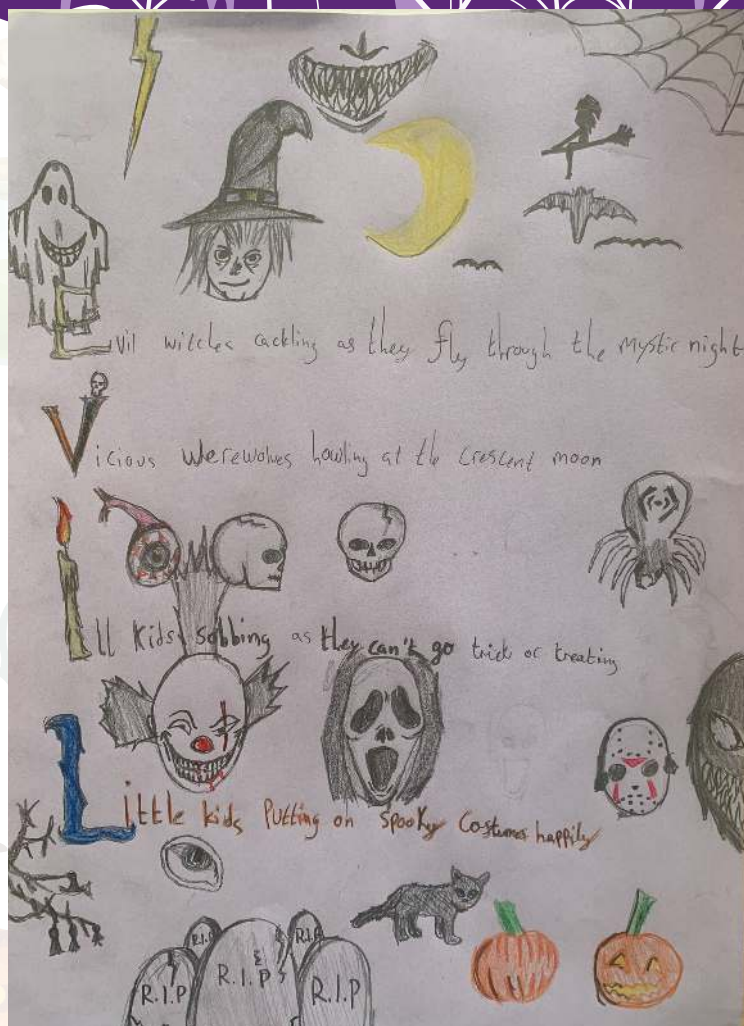 Evil witches cackling as they fly through the mystic night
Vicious werewolves howling at the crescent moon
Ill kids sobbing as they can't go trick or treating
Little kids Putting on Spooky Costumes happily
R.I.P R.I.P
R.I.P R.I.P R.I.P